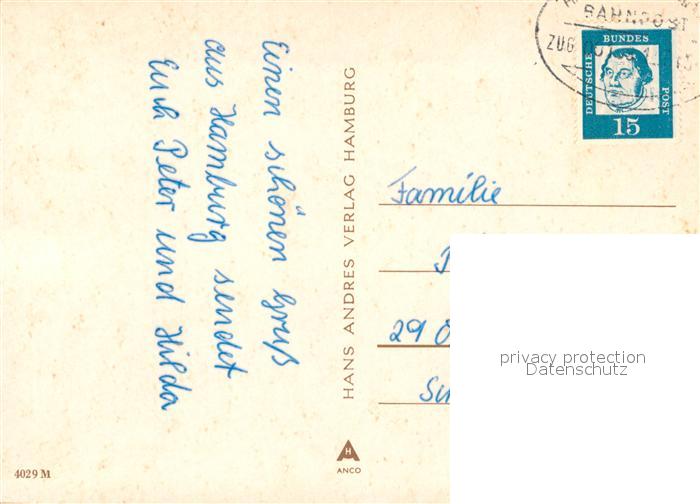 Einen schönen Gruß
aus Hamburg sendet
Euch Peter und Hilda
HANS ANDRES VERLAG HAMBURG
BAHNPOST
ZUG
DEUTSCHE
BUNDES
POST
15
Familie
29
privacy protection
Datenschutz
H
ANCO
4029 M